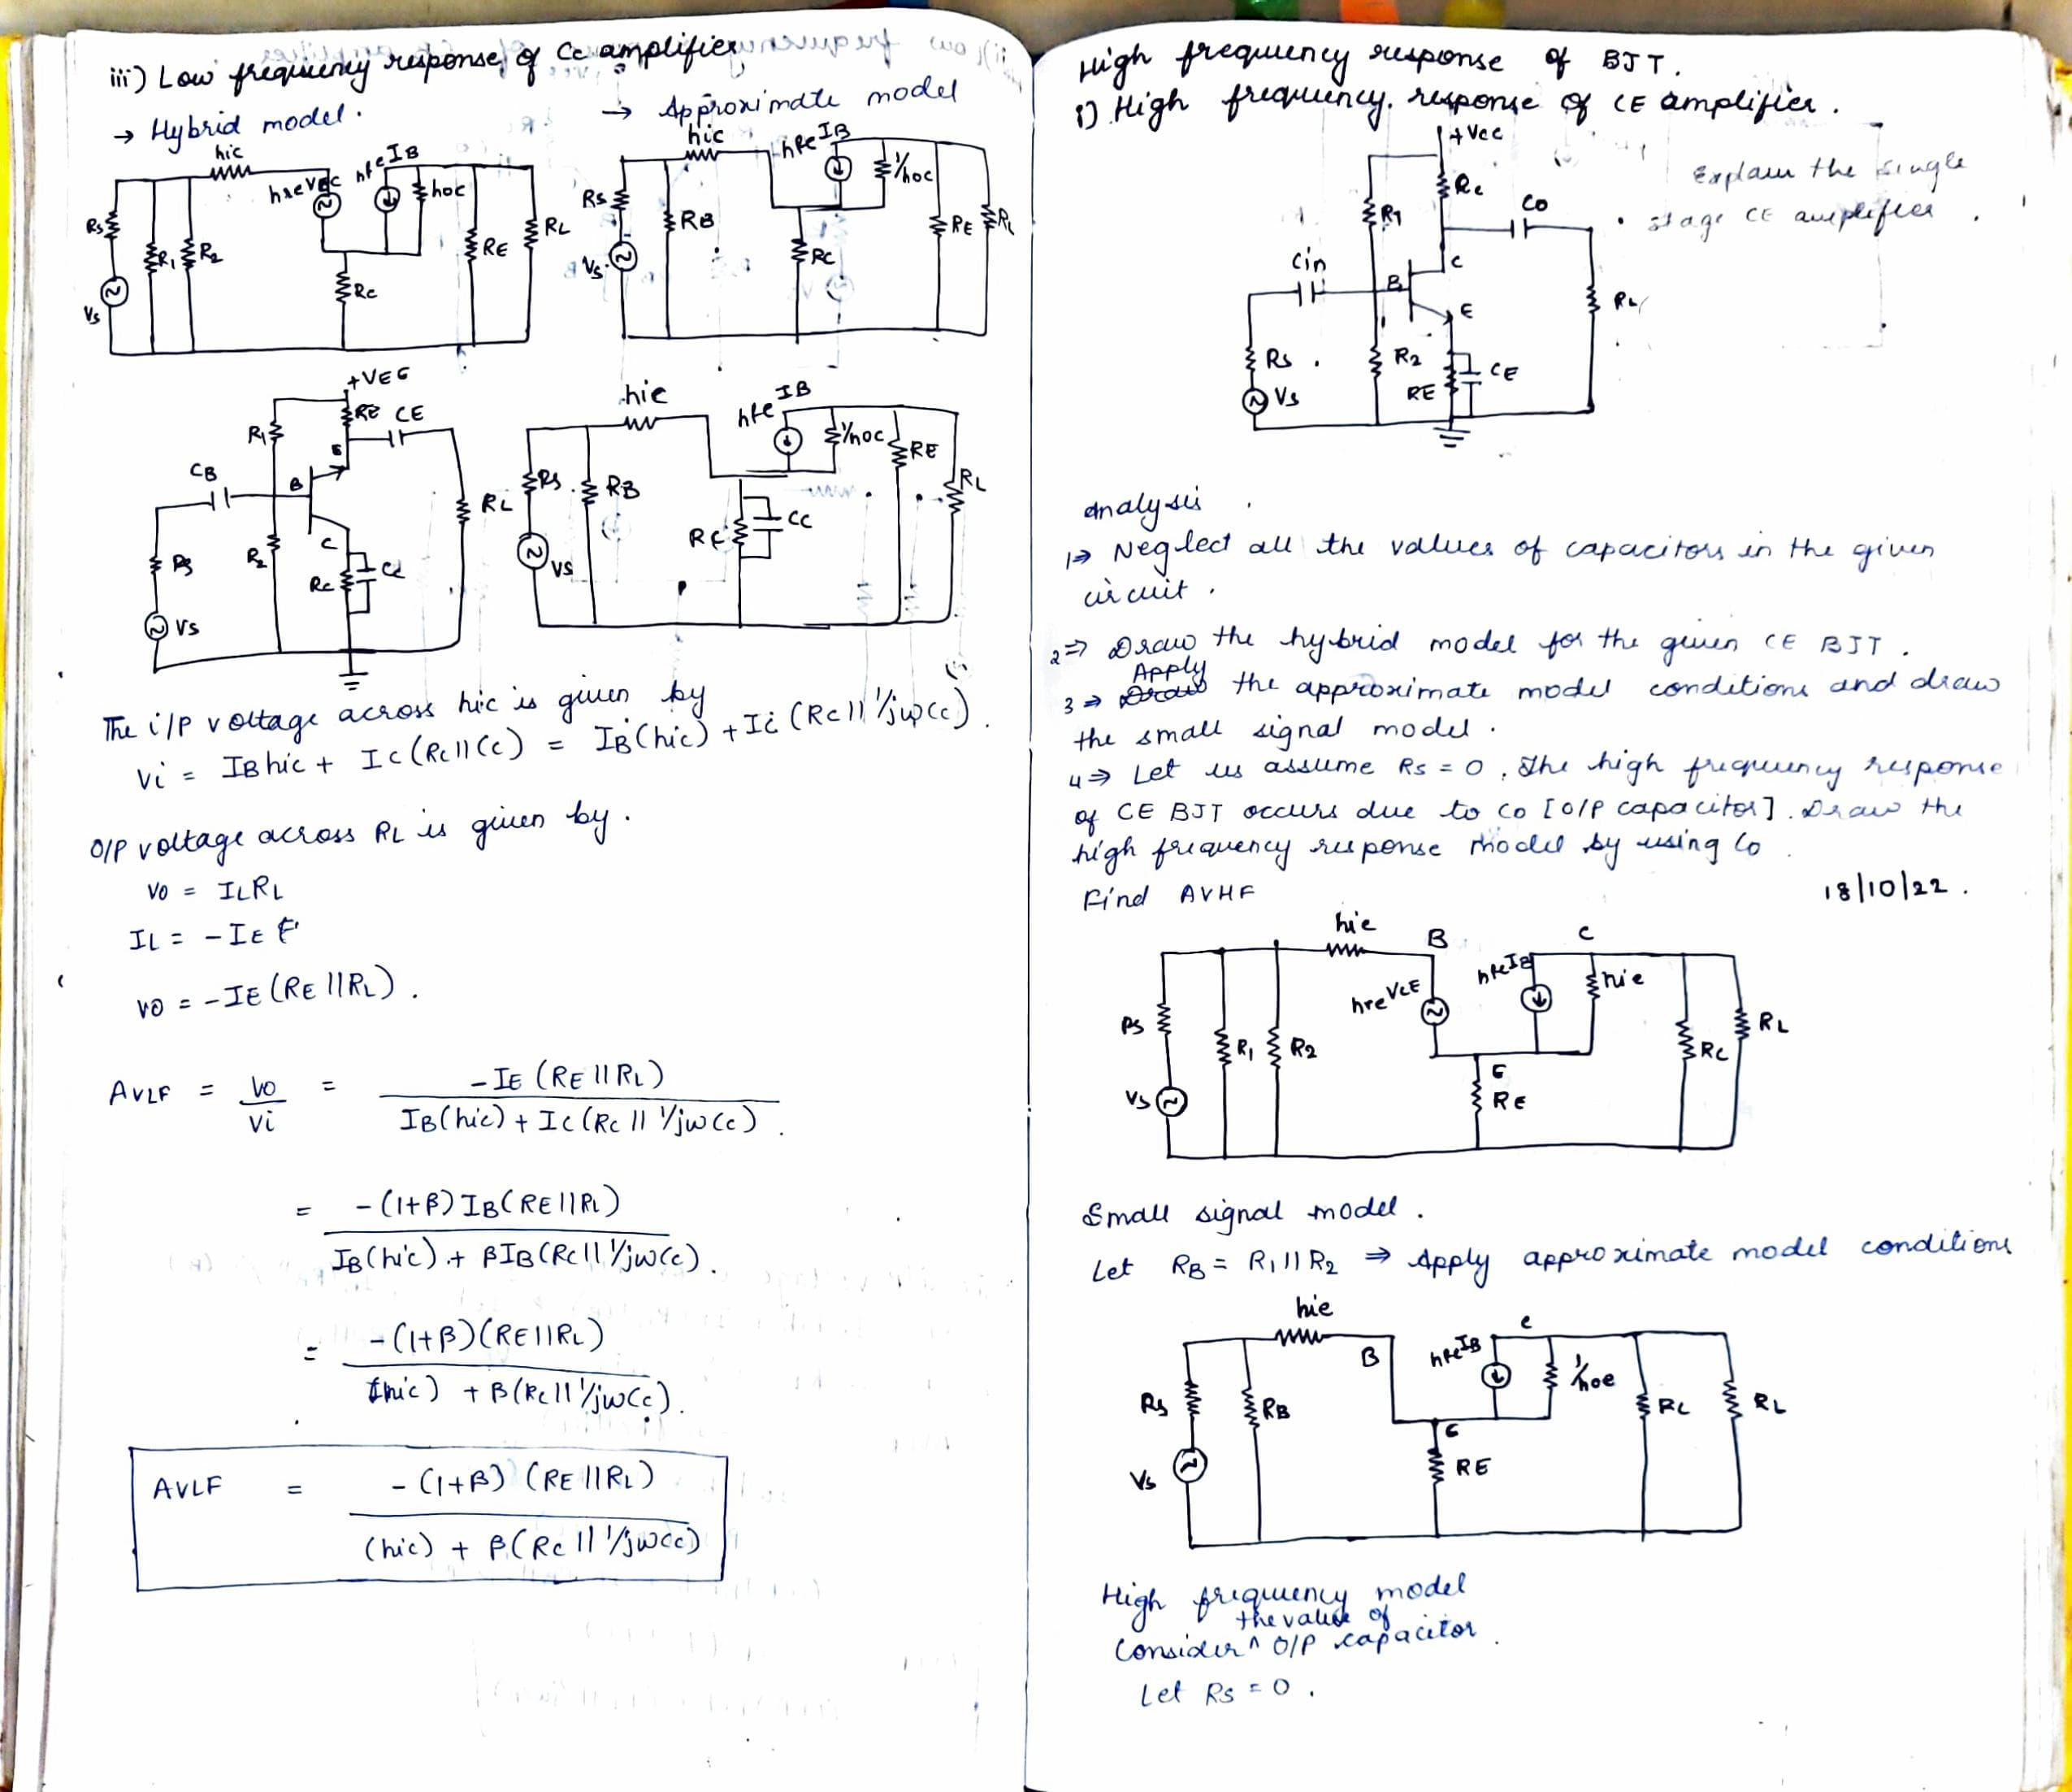 iii) Low frequency response of CC amplifier
→ Hybrid model.
→ Approximate model
hic
hreVec
hfeIB
hoc
Rs
R1
R2
RE
RL
Rc
Vs
hic
hfeIB
1/hoc
Rs
RB
RE
RL
Vs
RC
+VEE
RE
CE
R1
E
CB
B
RL
C
R2
Rs
Rc
CC
Vs
hie
hfe IB
1/hoc
RE
Rs
RB
RL
CC
RC
VS
The i/p voltage across hic is given by
Vi = IBhic + IC(RC||CC) = IB(hic) + IC (RC || 1/jωCC).
O/P voltage across RL is given by.
VO = ILRL
IL = -IE
VO = -IE (RE ||RL).
AVLF = VO/Vi = -IE (RE||RL) / IB(hic) + IC(RC || 1/jωCC).
= -(1+β)IB(RE||RL) / IB(hic) + βIB(RC||1/jωCC).
= -(1+β)(RE||RL) / (hic) + β(RC||1/jωCC).
AVLF = -(1+β) (RE||RL) / (hic) + β(RC || 1/jωCC)
High frequency response of BJT.
i) High frequency response of CE amplifier.
+Vcc
Explain the single
stage CE amplifier.
Rc
R1
CO
Cin
C
B
E
RL
Rs
R2
CE
RE
Vs
analysis
1⇒ Neglect all the values of capacitors in the given
circuit.
2⇒ Draw the hybrid model for the given CE BJT.
3⇒ Apply the approximate model conditions and draw
the small signal model.
4⇒ Let us assume Rs = 0. The high frequency response
of CE BJT occurs due to CO [O/P capacitor]. Draw the
high frequency response model by using CO
Find AVHF
18/10/22.
hie
B
C
hreVCE
hfeIB
hie
Rs
R1
R2
RC
RL
Vs
E
RE
Small signal model.
Let RB = R1||R2 ⇒ Apply approximate model conditions
hie
C
B
hfeIB
1/hoe
Rs
RB
RC
RL
E
RE
Vs
High frequency model
Consider ^ the value of O/P capacitor.
Let Rs = 0.